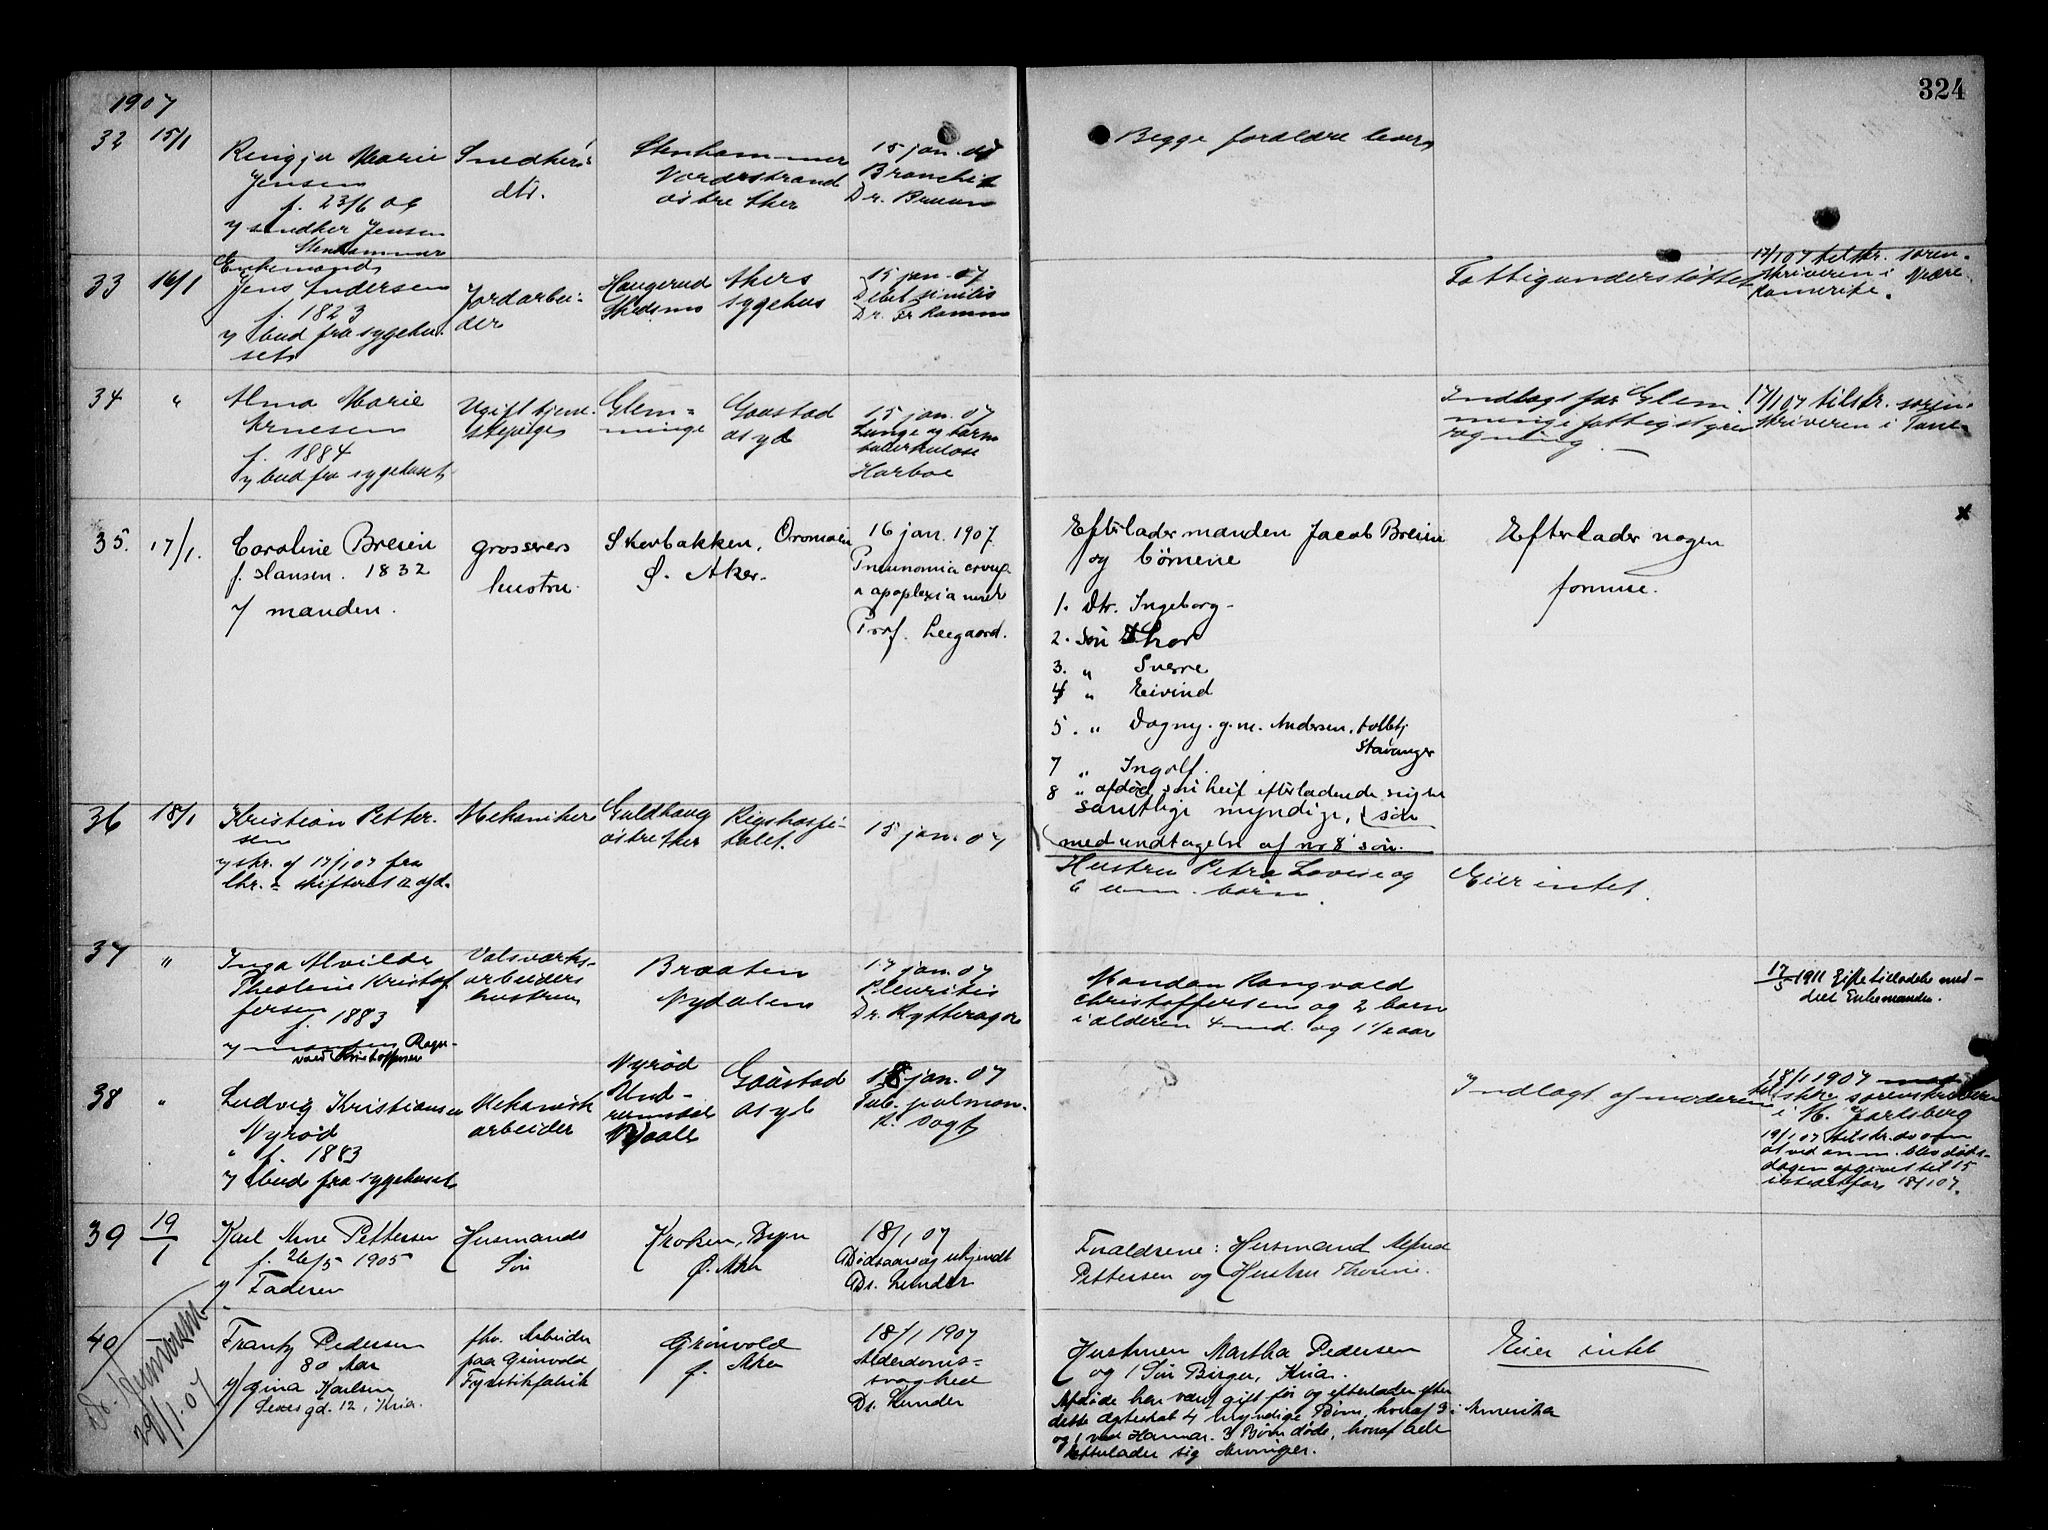 324
1907
32 15/1
Ringja Marie
Jensen
f. 23/6 06
v/ snedker Jensen
Stenhammer
Snedkers
dtr.
Stenhammer
Nordstrand
østre Aker
15 jan. 07
Bronchit
Dr. Bruun
Begge forældre lever
33 16/1
Enkemand
Jens Andersen
f. 1823
v/ bud fra sygehu-
set
Jordarbei-
der
Haugerud
Skedsmo
Akers
sygehus
15 jan. 07
Debil. senilis
Dr. Fr.
Fattigunderstøttet
17/1 07 tilskr. soren-
skriveren i Nedre
Romerike.
34 "
Alma Marie
Arnesen
f. 1884
v/ bud fra sygehuset
Ugift tjene-
stepige
Glem-
minge
Gaustad
asyl
15 jan. 07
Lunge og tarm
tuberkulose
Harboe
Indlagt for Glem-
minge fattigstyres
regning.
17/1 07 tilskr. soren-
skriveren i Tune
35. 17/1.
Caroline Breien
f. Hansen. 1832
v/ manden.
grosserers
hustru.
Skovbakken, Ormøen
Ø. Aker.
16 jan. 1907.
Pneumonia croup.
Prof. Leegaard.
Efterlader manden Jacob Breien
og børnene
1. Dtr. Ingeborg
2. Søn Thor
3. " Sverre
4 " Eivind
5. " Dagny. g.m. Andersen, toldbtj
Stavanger
7 " Ingolf.
8 " afdød søn Leif efterladende sig en
samtlige myndige, søn
med undtagelse af nr 8' søn.
Efterlader nogen
formue.
x
36 18/1
Kristian Petter-
sen
v/ skr. af 17/1 07 fra
Chr.a skifteret 2 afd.
Mekaniker
Guldhaug
østre Aker
Rigshospi-
talet.
15 jan. 07
Hustru Petra Lovise og
6 um. børn.
Eier intet.
37 "
Inga Alvilde
Theoline Kristof
fersen
f. 1883
v/ manden Ragn-
vald Kristoffersen
Valsværks-
arbeiders
hustru
Braaten
Nydalen
17 jan. 07
Pleuritis
Dr. Rytterager
Manden Rangvald
Christoffersen og 2 barn
i alderen 4 md. og 1 1/2 aar
17/5 1911 Giftetilladelse med-
delt Enkemanden.
38 "
Ludvig Kristiansen
Nyrød
f. 1883
v/ bud fra sygehuset
Mekanisk
arbeider
Nyrød
Und-
rumsdal
Vaale
Gaustad
asyl
18 jan. 07
Tub. pulmon.
R. Vogt
Indlagt af moderen
18/1 1907 med
tilskr. sorenskriveren
i M. Jarlsberg
19/1 07 tilskr. do om
at ved anm. blev døds-
dagen opgivet til 15
istedetfor 18/1 07.
39 19/1
Karl Arne Pettersen
f. 26/5 1905
v/ Faderen
Husmands
Søn
Kroken, Bryn
Ø. Aker
18/1 07
Dødsaarsag ukjendt
Dr. Lunder
Forældrene: Husmand Alfred
Pettersen og Hustru Thorine.
40
29/1.07
Frantz Pedersen
80 Aar
v/ Gina Karlsen
gd. 12, Kria.
fhv. Arbeider
paa Grønvold
Fyrstikfabrik
Grønvold
Ø. Aker
18/1 1907
Alderdoms-
svaghed
Dr. Lunder
Hustruen Martha Pedersen
og 1 Søn Birger, Kria.
Afdøde har været gift før og efterlader efter
dette Ægteskab 4 myndige Børn, hvoraf 3 i Amerika
og 1 ved Hamar. 3 Børn døde, hvoraf
efterlader sig Livsarvinger.
Eier intet